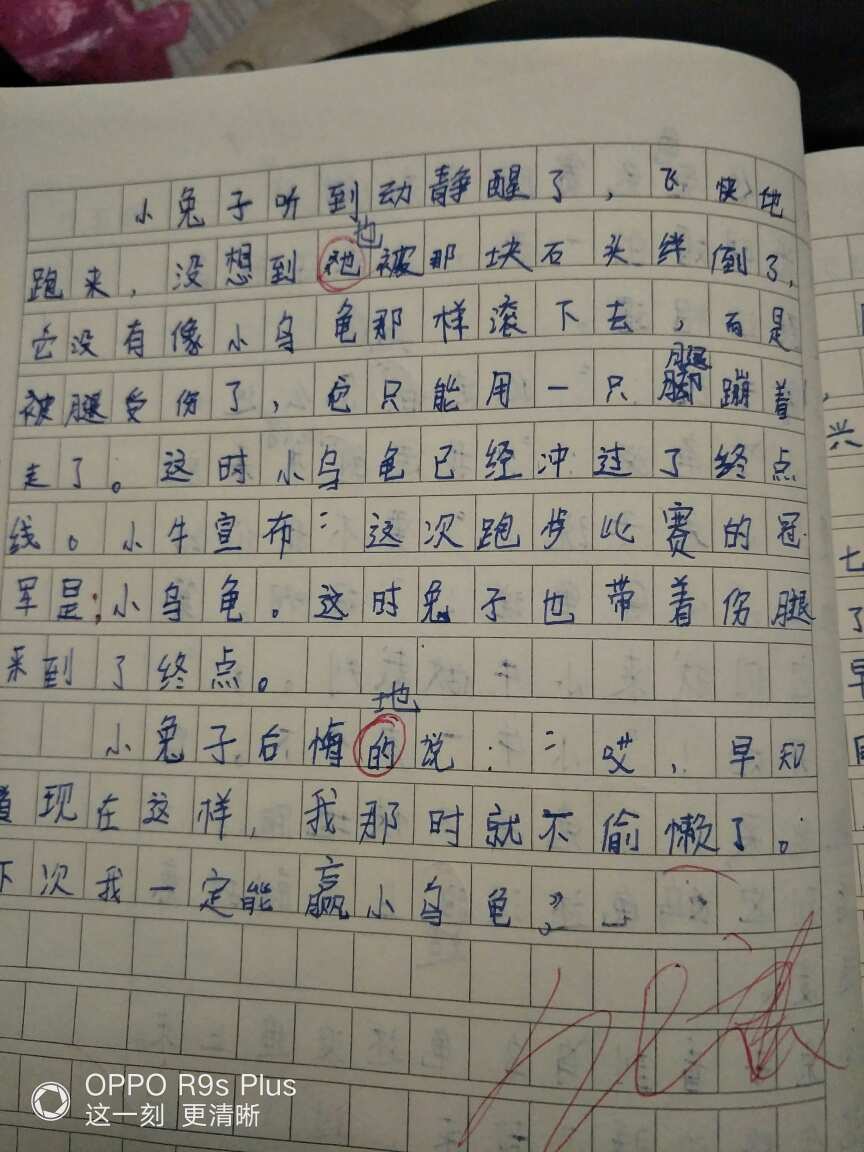 小兔子听到动静醒了，飞快地
也
跑来，没想到祂被那块石头绊倒了，
它没有像小乌龟那样滚下去，而是
腿
被腿受伤了，它只能用一只脚蹦着
走了。这时小乌龟已经冲过了终点
线。小牛宣布：这次跑步比赛的冠
军是：小乌龟。这时兔子也带着伤腿
来到了终点。
地
小兔子后悔的说：“哎，早知
道现在这样，我那时就不偷懒了。
下次我一定能赢小乌龟。”
兴
七
了
早
OPPO R9s Plus
这一刻 更清晰